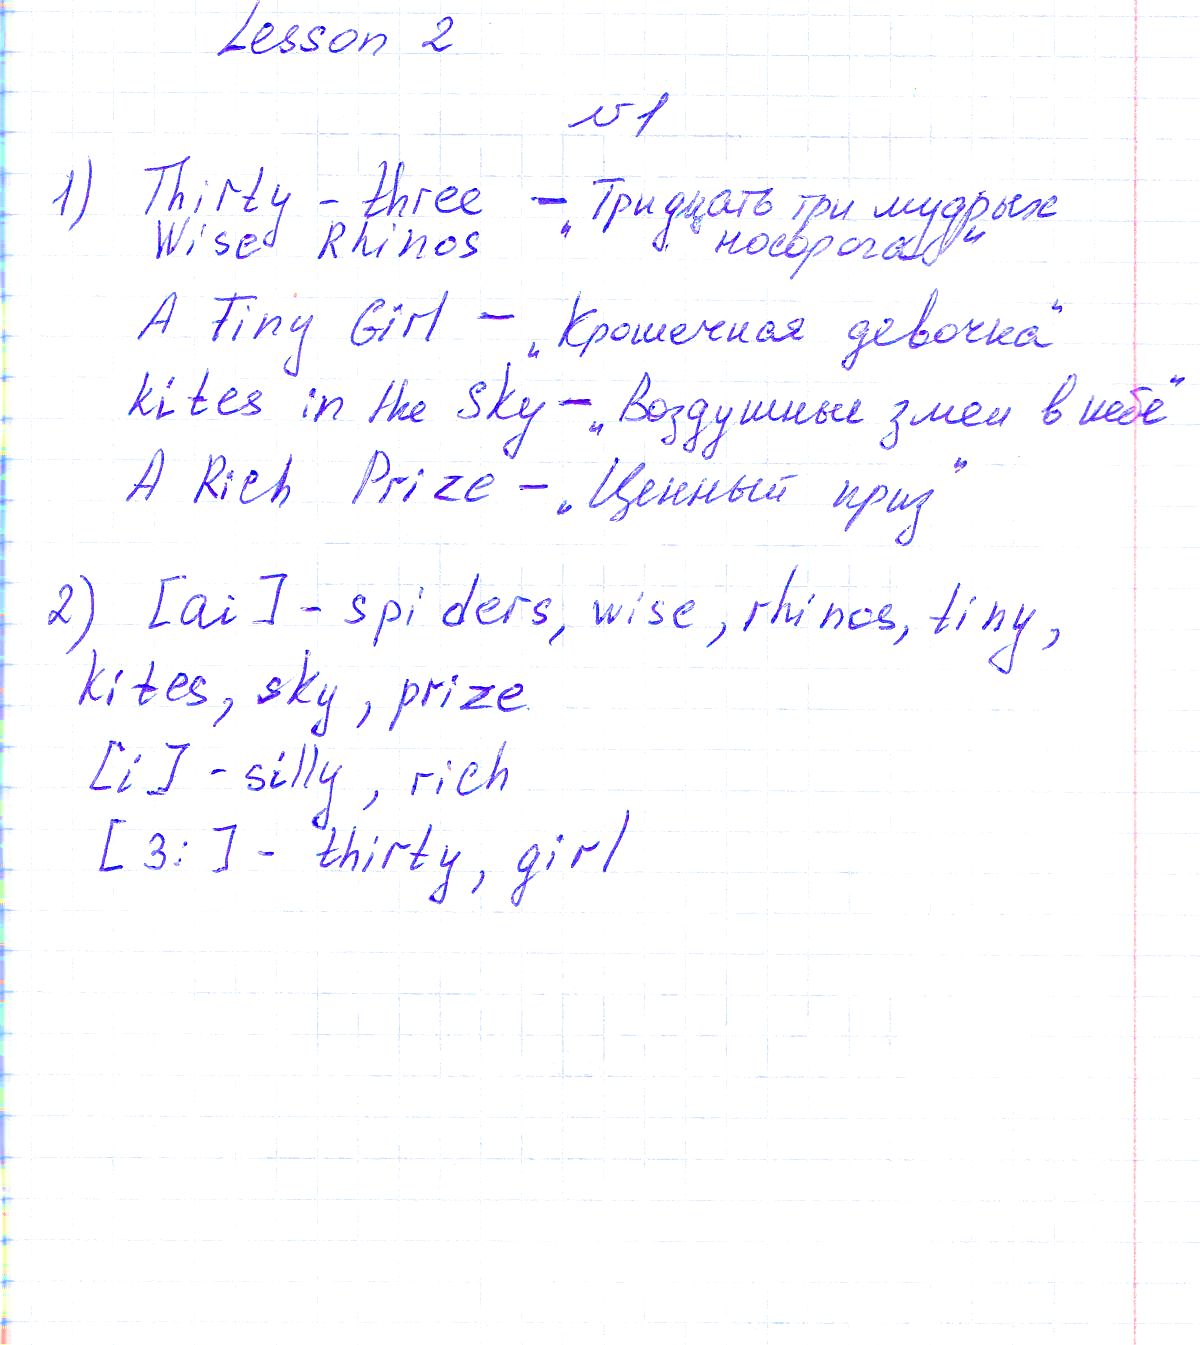 Lesson 2
№1
1) Thirty - three - „Тридцать три мудрых
Wise Rhinos носорога“
A Tiny Girl - „Крошечная девочка“
Kites in the Sky - „Воздушные змеи в небе“
A Rich Prize - „Ценный приз“
2) [ai] - spiders, wise, rhinos, tiny,
kites, sky, prize
[i] - silly, rich
[3:] - thirty, girl